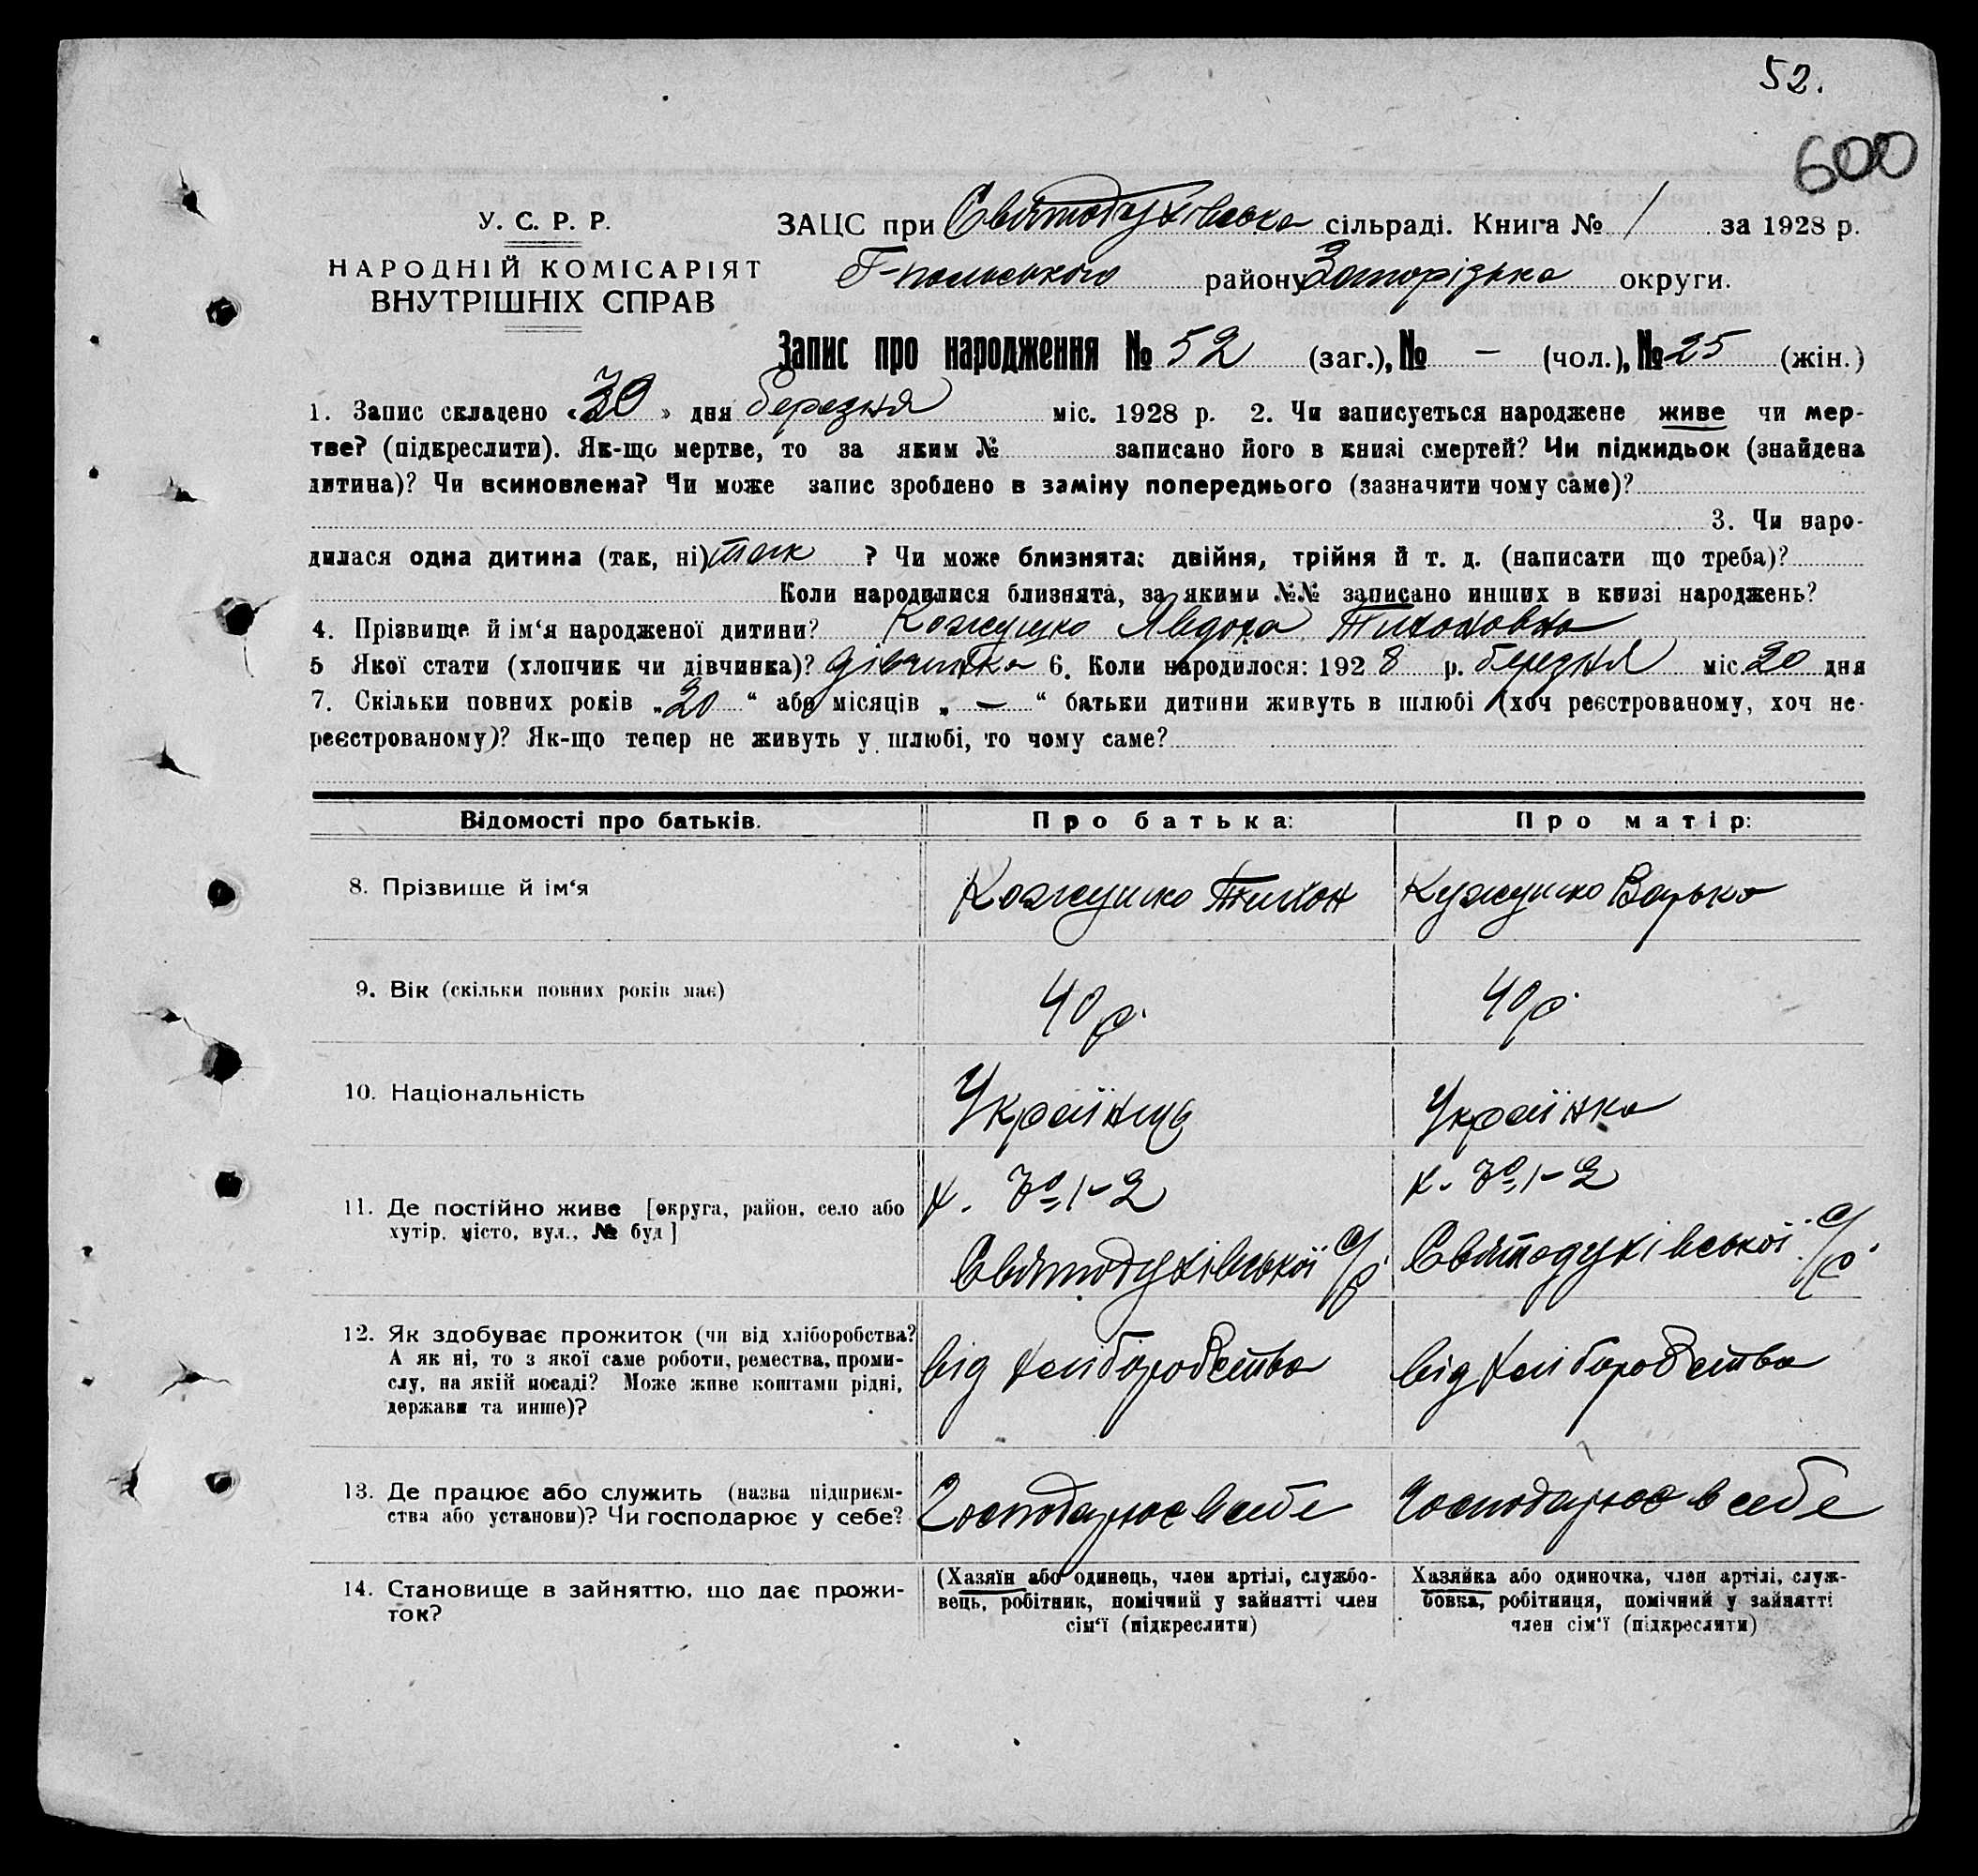 52.
600
У. С. Р. Р.
НАРОДНІЙ КОМІСАРІЯТ
ВНУТРІШНІХ СПРАВ
ЗАЦС при Святодухівська сільраді. Книга № 1 за 1928 р.
Г-польського району Запорізька округи.
Запис про народження № 52 (заг.), № – (чол.), № 25 (жін.)
1. Запис складено «30» дня березня міс. 1928 р. 2. Чи записується народжене живе чи мер-
тве? (підкреслити). Як-що мертве, то за яким № записано його в книзі смертей? Чи підкидьок (знайдена
дитина)? Чи всиновлена? Чи може запис зроблено в заміну попереднього (зазначити чому саме)?
3. Чи наро-
дилася одна дитина (так, ні) так ? Чи може близнята: двійня, трійня й т. д. (написати що треба)?
Коли народилися близнята, за якими №№ записано инших в книзі народжень?
4. Прізвище й ім‘я народженої дитини? Кожушко Явдоха Тихоновна
5 Якої стати (хлопчик чи дівчинка)? дівчинка 6. Коли народилося: 1928 р. березня міс. 20 дня
7. Скільки повних років „20“ або місяців „–“ батьки дитини живуть в шлюбі (хоч реєстрованому, хоч не-
реєстрованому)? Як-що тепер не живуть у шлюбі, то чому саме?
Відомості про батьків. Про батька: Про матір:
8. Прізвище й ім‘я Кожушко Тихон Кужушко Варька
9. Вік (скільки повних років має) 40 р. 40 р.
10. Національність Українць Українка
11. Де постійно живе [округа, район, село або х. № 1-2 х. № 1-2
хутір, місто, вул., № буд] Святодухівської с/р. Святодухівської с/р.
12. Як здобуває прожиток (чи від хліборобства? від хліборобства від хліборобства
А як ні, то з якої саме роботи, ремества, проми-
слу, на якій посаді? Може живе коштами рідні,
держави та инше)?
13. Де працює або служить (назва підприєм- Господарює в себе Господарює в себе
ства або установи)? Чи господарює у себе?
14. Становище в зайняттю, що дає прожи- (Хазяїн або одинець, член артілі, службо- Хазяйка або одиночка, член артілі, служ-
ток? вець, робітник, помічний у зайнятті член бовка, робітниця, помічний у зайнятті
сім‘ї (підкреслити) член сім‘ї (підкреслити)